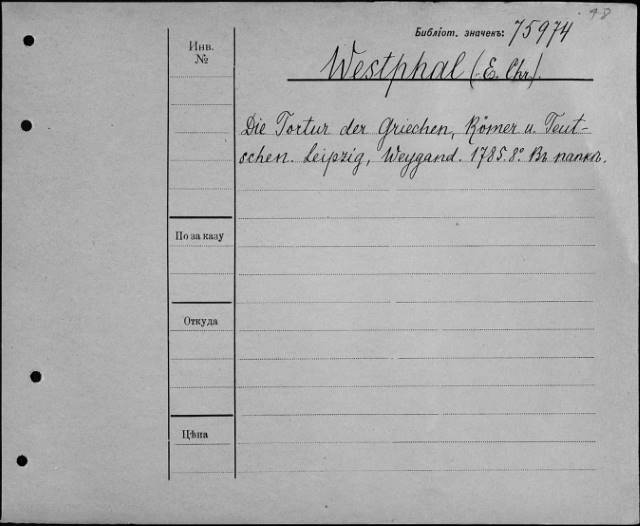 48
Библіот. значекъ: 75974
Инв.
№
Westphal (E. Chr.).
Die Tortur der Griechen, Römer u. Teut-
schen. Leipzig, Weygand. 1785. 8°. Въ папкѣ.
По заказу
Откуда
Цѣна